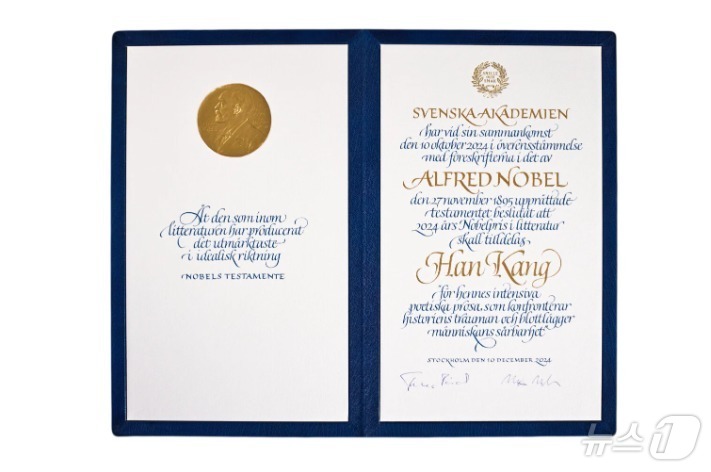 Åt den som inom
litteraturen har producerat
det utmärktaste
i idealisk riktning
NOBELS TESTAMENTE
SNILLE
OCH
SMAK
SVENSKA AKADEMIEN
har vid sin sammankomst
den 10 oktober 2024 i överensstämmelse
med föreskrifterna i det av
ALFRED NOBEL
den 27 november 1895 upprättade
testamentet beslutat att
2024 års Nobelpris i litteratur
skall tilldelas
Han Kang
för hennes intensiva
poetiska prosa som konfronterar
historiens trauman och blottlägger
människans sårbarhet
STOCKHOLM DEN 10 DECEMBER 2024
뉴스1